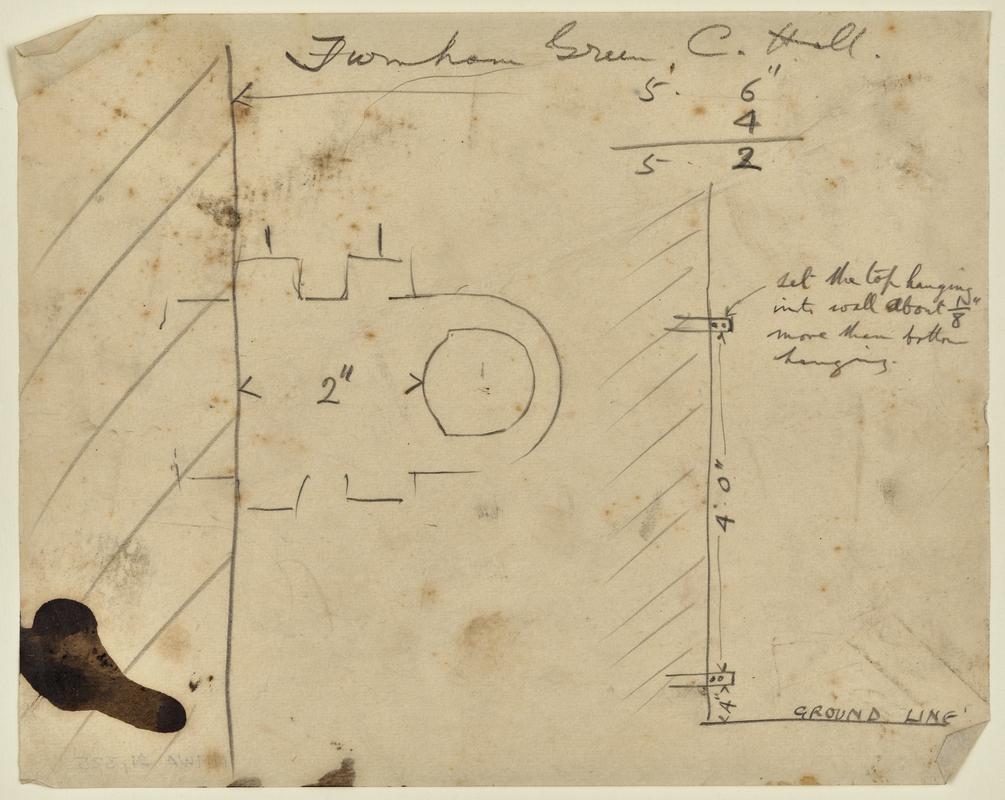 Green C. Hall.
5' 6"
4
5 2
2"
set the top hanging
into wall about 1/8"
more than bottom
hanging.
4' 0"
4"
GROUND LINE